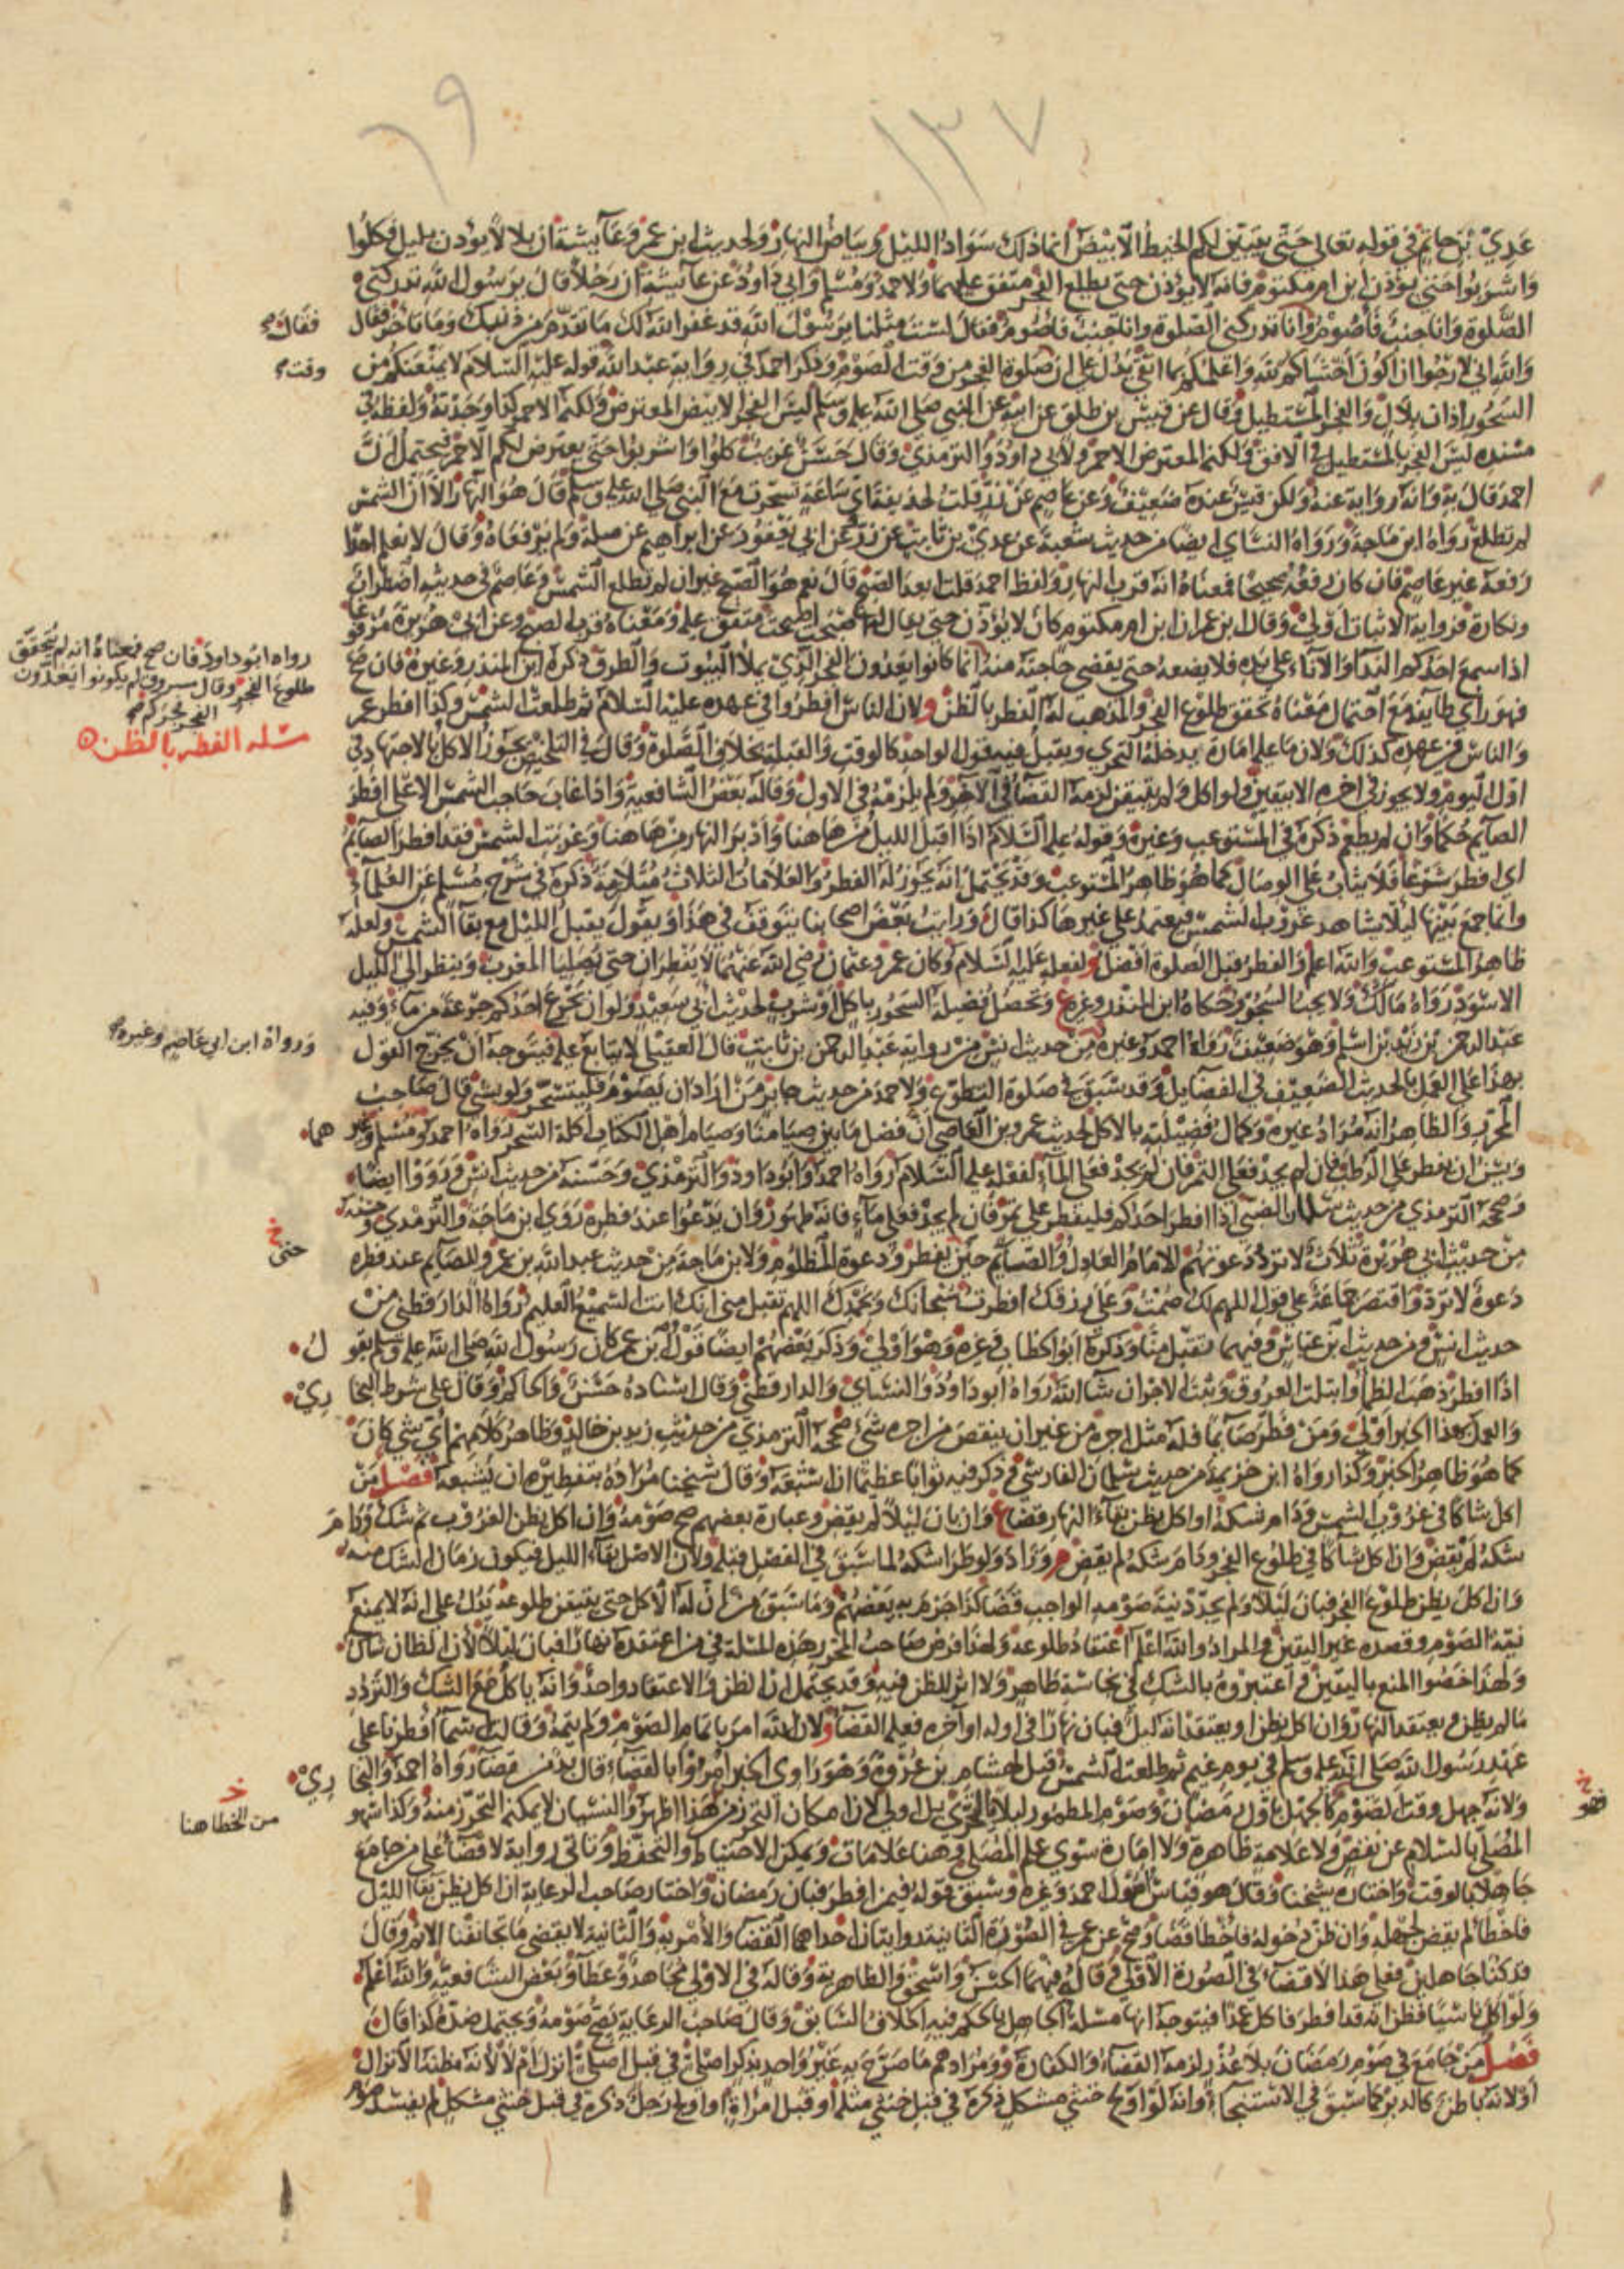 ١٣٧
٦٩
عَدِيّ بن حاتم في قوله تعالى حتى يتبين لكم الخيط الأبيض انما ذلك سواد الليل وبياض النهار ولحديث ابن عمر وعائشة ان بلالا يؤذن بليل فكلوا
واشربوا حتى يؤذن ابن ام مكتوم فانه لا يؤذن حتى يطلع الفجر متفق عليهما ولاحمد ومسلم وابي داود عن عائشة ان رجلا قال يرسول الله تدركني
الصلوة وانا جنب فأصوم فقال وانا تدركني الصلوة وانا جنب فاصوم فقال لست مثلنا يرسول الله قد غفر الله لك ما تقدم من ذنبك وما تأخر فقال
والله اني لارجوا ان اكون اخشاكم لله واعلمكم بما اتقي يدل على ان صلوة الفجر من وقت الصوم وذكر احمد في رواية عبد الله قوله عليه السلام لا يمنعنكم من
السحور اذان بلال والفجر المستطيل وقال عن قيس بن طلق عن ابيه عن النبي صلى الله عليه وسلم ليس الفجر الابيض المعترض ولكنه الاحمر كذا وجدته ولفظه في
مسنده ليس الفجر بالمستطيل في الافق ولكنه المعترض الاحمر ولابي داود والترمذي وقال حسن غريب كلوا واشربوا حتى يعترض لكم الاحمر فيحتمل ان
احمد قال به وانه رواية عنه ولكن قيس عنده ضعيف وعن عاصم عن زر قلت لحذيفة اي ساعة تسحرت مع النبي صلى الله عليه وسلم قال هو النهار الا ان الشمس
لم تطلع رواه ابن ماجة ورواه النساي ايضا من حديث شعبة عن عدي بن ثابت عن زر وعن ابي يعفور عن ابراهيم عن صلة ولم يرفعاه وقال لا نعلم احدا
رفعه غير عاصم فان كان رفعه صحيحا فمعناه انه قرب النهار ولفظ احمد قلت ابعد الصبح قال نعم هو الصبح غير ان لم تطلع الشمس وعاصم في حديثه اضطراب
ونكارة فرواية الاثبات اولى وقال ابن عمر ان ابن ام مكتوم كان لا يؤذن حتى يقال له اصبحت اصبحت متفق عليه ومعناه قرب الصبح وعن ابي هريرة مرفوعا
اذا سمع احدكم الندا والاناء على يده فلا يضعه حتى يقضي حاجته منه انما كانوا يعدون الفجر الذي يملأ البيوت والطرق ذكره ابن المنذر وغيره فان صح
فهو رأي طائفة مع احتمال معناه تحقق طلوع الفجر والمذهب له الفطر بالظن ولان الناس افطروا في عهده عليه السلام ثم طلعت الشمس وكذا افطر عمر
والناس في عهده كذلك ولان ما عليه امارة يدخله التحري ويقبل فيه قول الواحد كالوقت والقبلة بخلاف الصلوة وقال في التلخيص يجوز الاكل بالاجتهاد في
اول اليوم ولا يجوز في اخره الا بيقين ولو اكل ولم يتيقن لزمه القضاء في الآخر ولم يلزمه في الاول وقاله بعض الشافعية واذا غاب حاجب الشمس الاعلى افطر
الصايم حكما وان لم يطعم ذكره في المستوعب وغيره وقوله عليه السلام اذا اقبل الليل من هاهنا وادبر النهار من هاهنا وغربت الشمس فقد افطر الصايم
اي افطر شرعا فلا يثاب على الوصال كما هو ظاهر المستوعب وقد يحتمل انه يجوز له الفطر والعلامات الثلاث متلازمة ذكره في شرح مسلم عن العلماء
وانما جمع بينها ليلا يشاهد غروب الشمس فيعتمد على غيرها كذا قال ورايت بعض اصحابنا يتوقف في هذا ويقول يقبل الليل مع بقاء الشمس ولعله
ظاهر المستوعب والله اعلم والفطر قبل الصلوة افضل ولفعله عليه السلام وكان عمر وعثمان رضي الله عنهما لا يفطران حتى يصليا المغرب وينظر الى الليل
الاسود رواه مالك ولا يجب السحور حكاه ابن المنذر وغيره ع وتحصل فضيلة السحور باكل او شرب لحديث ابي سعيد ولو ان يجرع احدكم جرعة من ماء وفيه
عبد الرحمن بن زيد بن اسلم وهو ضعيف رواه احمد وغيره من حديث انس من رواية عبد الرحمن بن ثابت قال العقيلي لا يتابع عليه فيتوجه ان يخرج القول
بهذا على العمل بالحديث الضعيف في الفضايل وقد سبق في صلوة التطوع ولاحمد من حديث جابر من اراد ان يصوم فليتسحر ولو بشي قال صاحب
المحرر والظاهر انه مراد غيره وكمال فضيلته بالاكل لحديث عمرو بن العاصي ان فصل ما بين صيامنا وصيام اهل الكتاب اكلة السحر رواه احمد ومسلم وغيرهما
ويسن ان يفطر على الرطب فان لم يجد فعلى التمر فان لم يجد فعلى الماء لفعله عليه السلام رواه احمد وابو داود والترمذي وحسنه من حديث انس ورووا ايضا
وصححه الترمذي من حديث سلمان الضبي اذا افطر احدكم فليفطر على تمر فان لم يجد فعلى ماء فانه طهور وان يدعوا عند فطره روى ابن ماجة والترمذي وحسنه
من حديث ابي هريرة ثلاث لا ترد دعوتهم الامام العادل والصايم حين يفطر ودعوة المظلوم ولابن ماجة من حديث عبد الله بن عمرو للصايم عند فطره
دعوة لا ترد واقتصر جماعة على قول اللهم لك صمت وعلى رزقك افطرت سبحانك وبحمدك اللهم تقبل مني انك انت السميع العليم رواه الدارقطني من
حديث انس ومن حديث ابن عباس وفيهما تقبل منا وذكره ابو الخطاب وغيره وهو اولى وذكر بعضهم ايضا قول ابن عمر كان رسول الله صلى الله عليه وسلم يقول
اذا افطر ذهب الظمأ وابتلت العروق وثبت الاجر ان شاء الله رواه ابو داود والنساي والدارقطني وقال اسناده حسن والحاكم وقال على شرط البخاري
والعمل بهذا الخبر اولى ومن فطر صائما فله مثل اجره من غير ان ينقص من اجره شيء صححه الترمذي من حديث زيد بن خالد وظاهر كلامهم اي شي كان
كما هو ظاهر الخبر وكذا رواه ابن خزيمة من حديث سلمان الفارسي ذكر فيه ثوابا عظيما ان اشبعه وقال شيخنا مراده بتفطيره ان يشبعه فصل من
اكل شاكا في غروب الشمس ودام شكه او اكل يظن بقاء النهار قضا ع وان بان ليلا لم يقض وعبارة بعضهم صح صومه وان اكل يظن الغروب ثم شك ودام
شكه لم يقض وان اكل شاكا في طلوع الفجر ودام شكه لم يقض م وزاد ولو طرا شكه لما سبق في الفصل قبله ولان الاصل بقاء الليل فيكون زمان الشك منه
وان اكل يظن طلوع الفجر فبان ليلا ولم يجدد نية صومه الواجب قضا كذا جزم به بعضهم وما سبق من ان له الاكل حتى يتيقن طلوعه يدل على انه لا يمنع
نية الصوم وقصده غير اليقين والمراد والله اعلم اعتقاد طلوعه ولهذا فرض صاحب المحرر هذه المسلة في من اعتقده نهارا فبان ليلا لان الظان شاك
ولهذا خصوا المنع باليقين واعتبروه بالشك في نجاسة طاهر ولا اثر للظن فيه وقد يحتمل ان الظن والاعتقاد واحد وانه ياكل مع الشك والتردد
ما لم يظن ويعتقد النهار وان اكل يظن او يعتقد انه ليل فبان نهارا في اوله او اخره فعليه القضاء ولان الله امر باتمام الصوم ولم يتمه وقالت اسماء افطرنا على
عهد رسول الله صلى الله عليه وسلم في يوم غيم ثم طلعت الشمس قيل لهشام بن عروة وهو راوي الخبر امروا بالقضاء قال بد من قضاء رواه احمد والبخاري
ولانه جهل وقت الصوم كالجهل باول رمضان وصوم المطمور ليلا بالتحري بل اولى لان امكان التحرز من هذا اظهر والنسيان لا يمكنه التحرز منه وكذا سهو
المصلي بالسلام عن نقص ولا علامة ظاهرة ولا امارة سوى علم المصلي وهنا علامات ويمكن الاحتياط والتحفظ وتاتي رواية لا قضاء على من جامع
جاهلا بالوقت واختاره شيخنا وقال هو قياس اصول احمد وغيره وسبق قوله فيمن افطر فبان رمضان واختار صاحب الرعاية ان اكل يظن بقاء الليل
فاخطأ لم يقض لجهله وان ظن دخوله فاخطأ قضا وصح عن عمر في الصورة الثانية روايتان احداهما القضاء والامر به والثانية لا يقضي ما تجانفنا الاثم وقال
قد كنا جاهلين فعلى هذا لا قضاء في الصورة الاولى وقاله فيهما الحسن واسحق والظاهرية وقاله في الاولى مجاهد وعطاء وبعض الشافعية والله اعلم
ولو اكل ناسيا فظن انه قد افطر فاكل عمدا فيتوجه انها مسلة الجاهل بالحكم فيه الخلاف السابق وقال صاحب الرعاية يصح صومه ويحتمل ضده كذا قال
فصل من جامع في صوم رمضان بلا عذر لزمه القضاء والكفارة ومرادهم ما صرح به غير واحد بذكر اصلي في قبل اصلي انزل ام لا لانه مظنة الانزال
او لانه باطن كالدبر كما سبق في الاستنجاء وانه لو اولج خنثى مشكل ذكره في قبل خنثى مثله او قبل امراة او اولج رجل ذكره في قبل خنثى مشكل لم يفسد صوم
فقال
وقت
رواه ابو داود فان صح فمعناه انه لم يتحقق
طلوع الفجر وقال مسروق لم يكونوا يعدون
الفجر فجركم
مسلة الفطر بالظن
ورواه ابن ابي عاصم وغيره
خ
حتى
خ
من الخطا هنا
خ
فهو